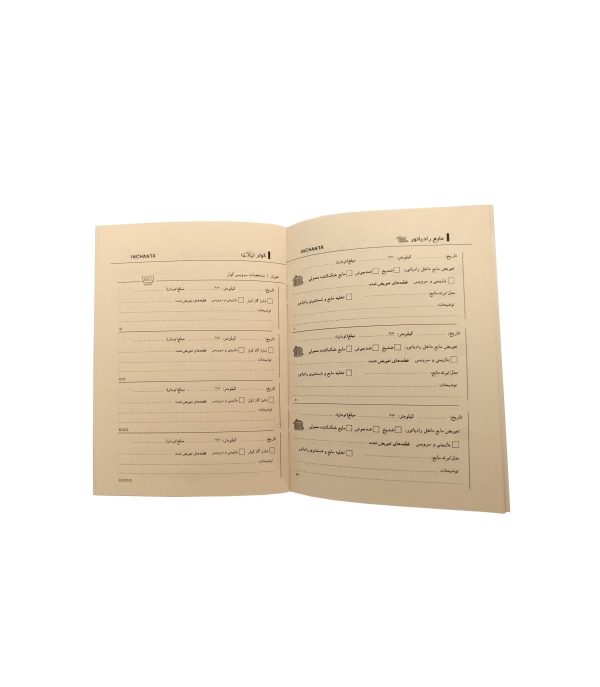 مایع رادیاتور
INCHANTA
تاریخ: کیلومتر: مبلغ(تومان):
تعویض مایع داخل رادیاتور: ضدیخ ضدجوش مایع خنک‌کننده معمولی
بازبینی و سرویس قطعه‌های تعویض شده:
مدل/برند مایع: تخلیه مایع و شستشوی رادیاتور
توضیحات:
تاریخ: کیلومتر: مبلغ(تومان):
تعویض مایع داخل رادیاتور: ضدیخ ضدجوش مایع خنک‌کننده معمولی
بازبینی و سرویس قطعه‌های تعویض شده:
مدل/برند مایع: تخلیه مایع و شستشوی رادیاتور
توضیحات:
تاریخ: کیلومتر: مبلغ(تومان):
تعویض مایع داخل رادیاتور: ضدیخ ضدجوش مایع خنک‌کننده معمولی
بازبینی و سرویس قطعه‌های تعویض شده:
مدل/برند مایع: تخلیه مایع و شستشوی رادیاتور
توضیحات:
کولر
INCHANTA
عنوان / مشخصات سرویس کولر
تاریخ: کیلومتر: مبلغ(تومان):
شارژ گاز کولر بازبینی و سرویس قطعه‌های تعویض شده:
توضیحات:
تاریخ: کیلومتر: مبلغ(تومان):
شارژ گاز کولر بازبینی و سرویس قطعه‌های تعویض شده:
توضیحات:
تاریخ: کیلومتر: مبلغ(تومان):
شارژ گاز کولر بازبینی و سرویس قطعه‌های تعویض شده:
توضیحات:
تاریخ: کیلومتر: مبلغ(تومان):
شارژ گاز کولر بازبینی و سرویس قطعه‌های تعویض شده:
توضیحات: